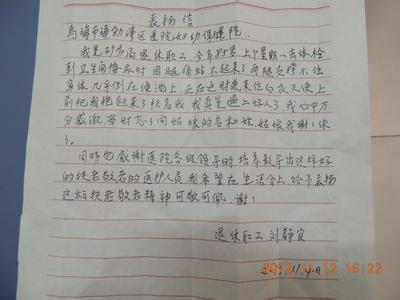 表扬信
乌海市海勃湾区医院妇幼保健院
我是矿务局退休职工 今年85岁 上个星期一去体检
到卫生间接尿时 因腿痛站不起来了 两腿支撑不住
身体几乎倒在便池上 正在这时进来位白衣天使上
前把我抱起来了扶高我 我真是遇上好人了 我心中万
分感激 当时忘了问姑娘的名和姓 姑娘我谢谢你
了。
同时也感谢医院各级领导的培养教导出这样好
的扶老敬老的医护人员 我希望在生活会上 给予表扬
这位扶老敬老精神可歌可佩 谢谢!
退休职工 刘静宜
2013.11.4日
2013.11.12 16:22